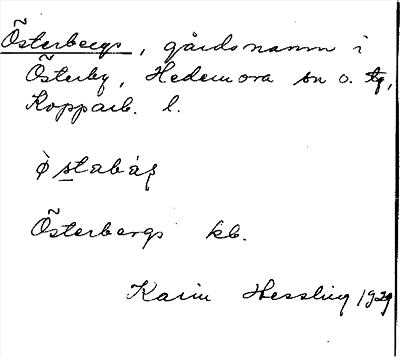 Österbergs, gårdsnamn i
Österby, Hedemora sn o. tg,
Kopparb. l.
Österbergs kb.
Karin Hessling 1929